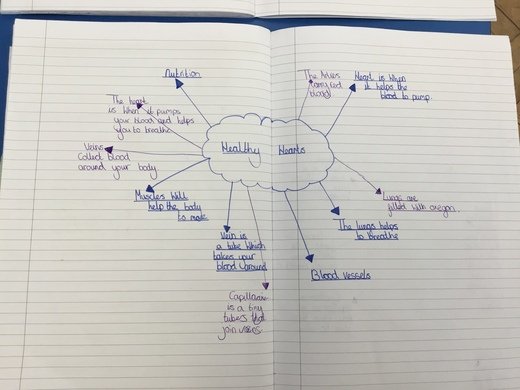 Nutrition
The heart
is when it pumps
your blood and helps
you to breathe
Veins
Collect blood
around your body.
Muscles Will
help the body
to move
Vein is
a tube which
takes your
blood around
Capillaries
is a tiny
tubes that
join
Healthy Hearts
The
carry red
blood
Heart is When
it helps the
blood to pump.
Lungs are
filled with oxegon.
The lungs helps
to breathe
Blood vessels